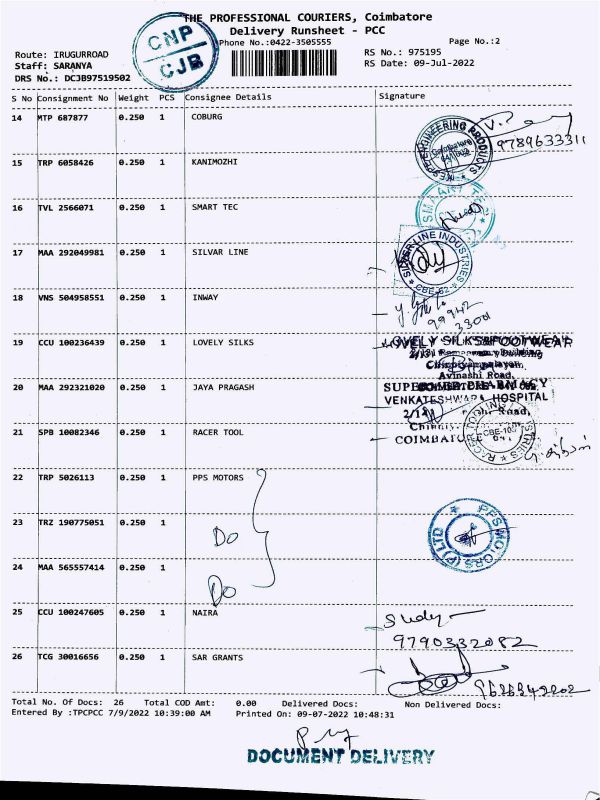 THE PROFESSIONAL COURIERS, Coimbatore
Delivery Runsheet - PCC
Phone No.:0422-3505555 Page No.:2
CNP
CJB
Route: IRUGURROAD RS No.: 975195
Staff: SARANYA RS Date: 09-Jul-2022
DRS No.: DCJB97519502
S No Consignment No Weight PCS Consignee Details Signature
14 MTP 687877 0.250 1 COBURG
9789633311
15 TRP 6058426 0.250 1 KANIMOZHI
16 TVL 2566071 0.250 1 SMART TEC
17 MAA 292049981 0.250 1 SILVAR LINE
SILVER LINE INDUSTRIES
CBE-62
18 VNS 504958551 0.250 1 INWAY
99942
3300
19 CCU 100236439 0.250 1 LOVELY SILKS
LOVELY SILKS&FOOTWEAR
Avinashi Road,
20 MAA 292321020 0.250 1 JAYA PRAGASH
VENKATESHWARA HOSPITAL
21 SPB 10082346 0.250 1 RACER TOOL
22 TRP 5026113 0.250 1 PPS MOTORS
23 TRZ 190775051 0.250 1 Do
PPS MOTORS (P) LTD
24 MAA 565557414 0.250 1 Do
25 CCU 100247605 0.250 1 NAIRA
9790332082
26 TCG 30016656 0.250 1 SAR GRANTS
9626342202
Total No. Of Docs: 26 Total COD Amt: 0.00 Delivered Docs: Non Delivered Docs:
Entered By :TPCPCC 7/9/2022 10:39:00 AM Printed On: 09-07-2022 10:48:31
DOCUMENT DELIVERY